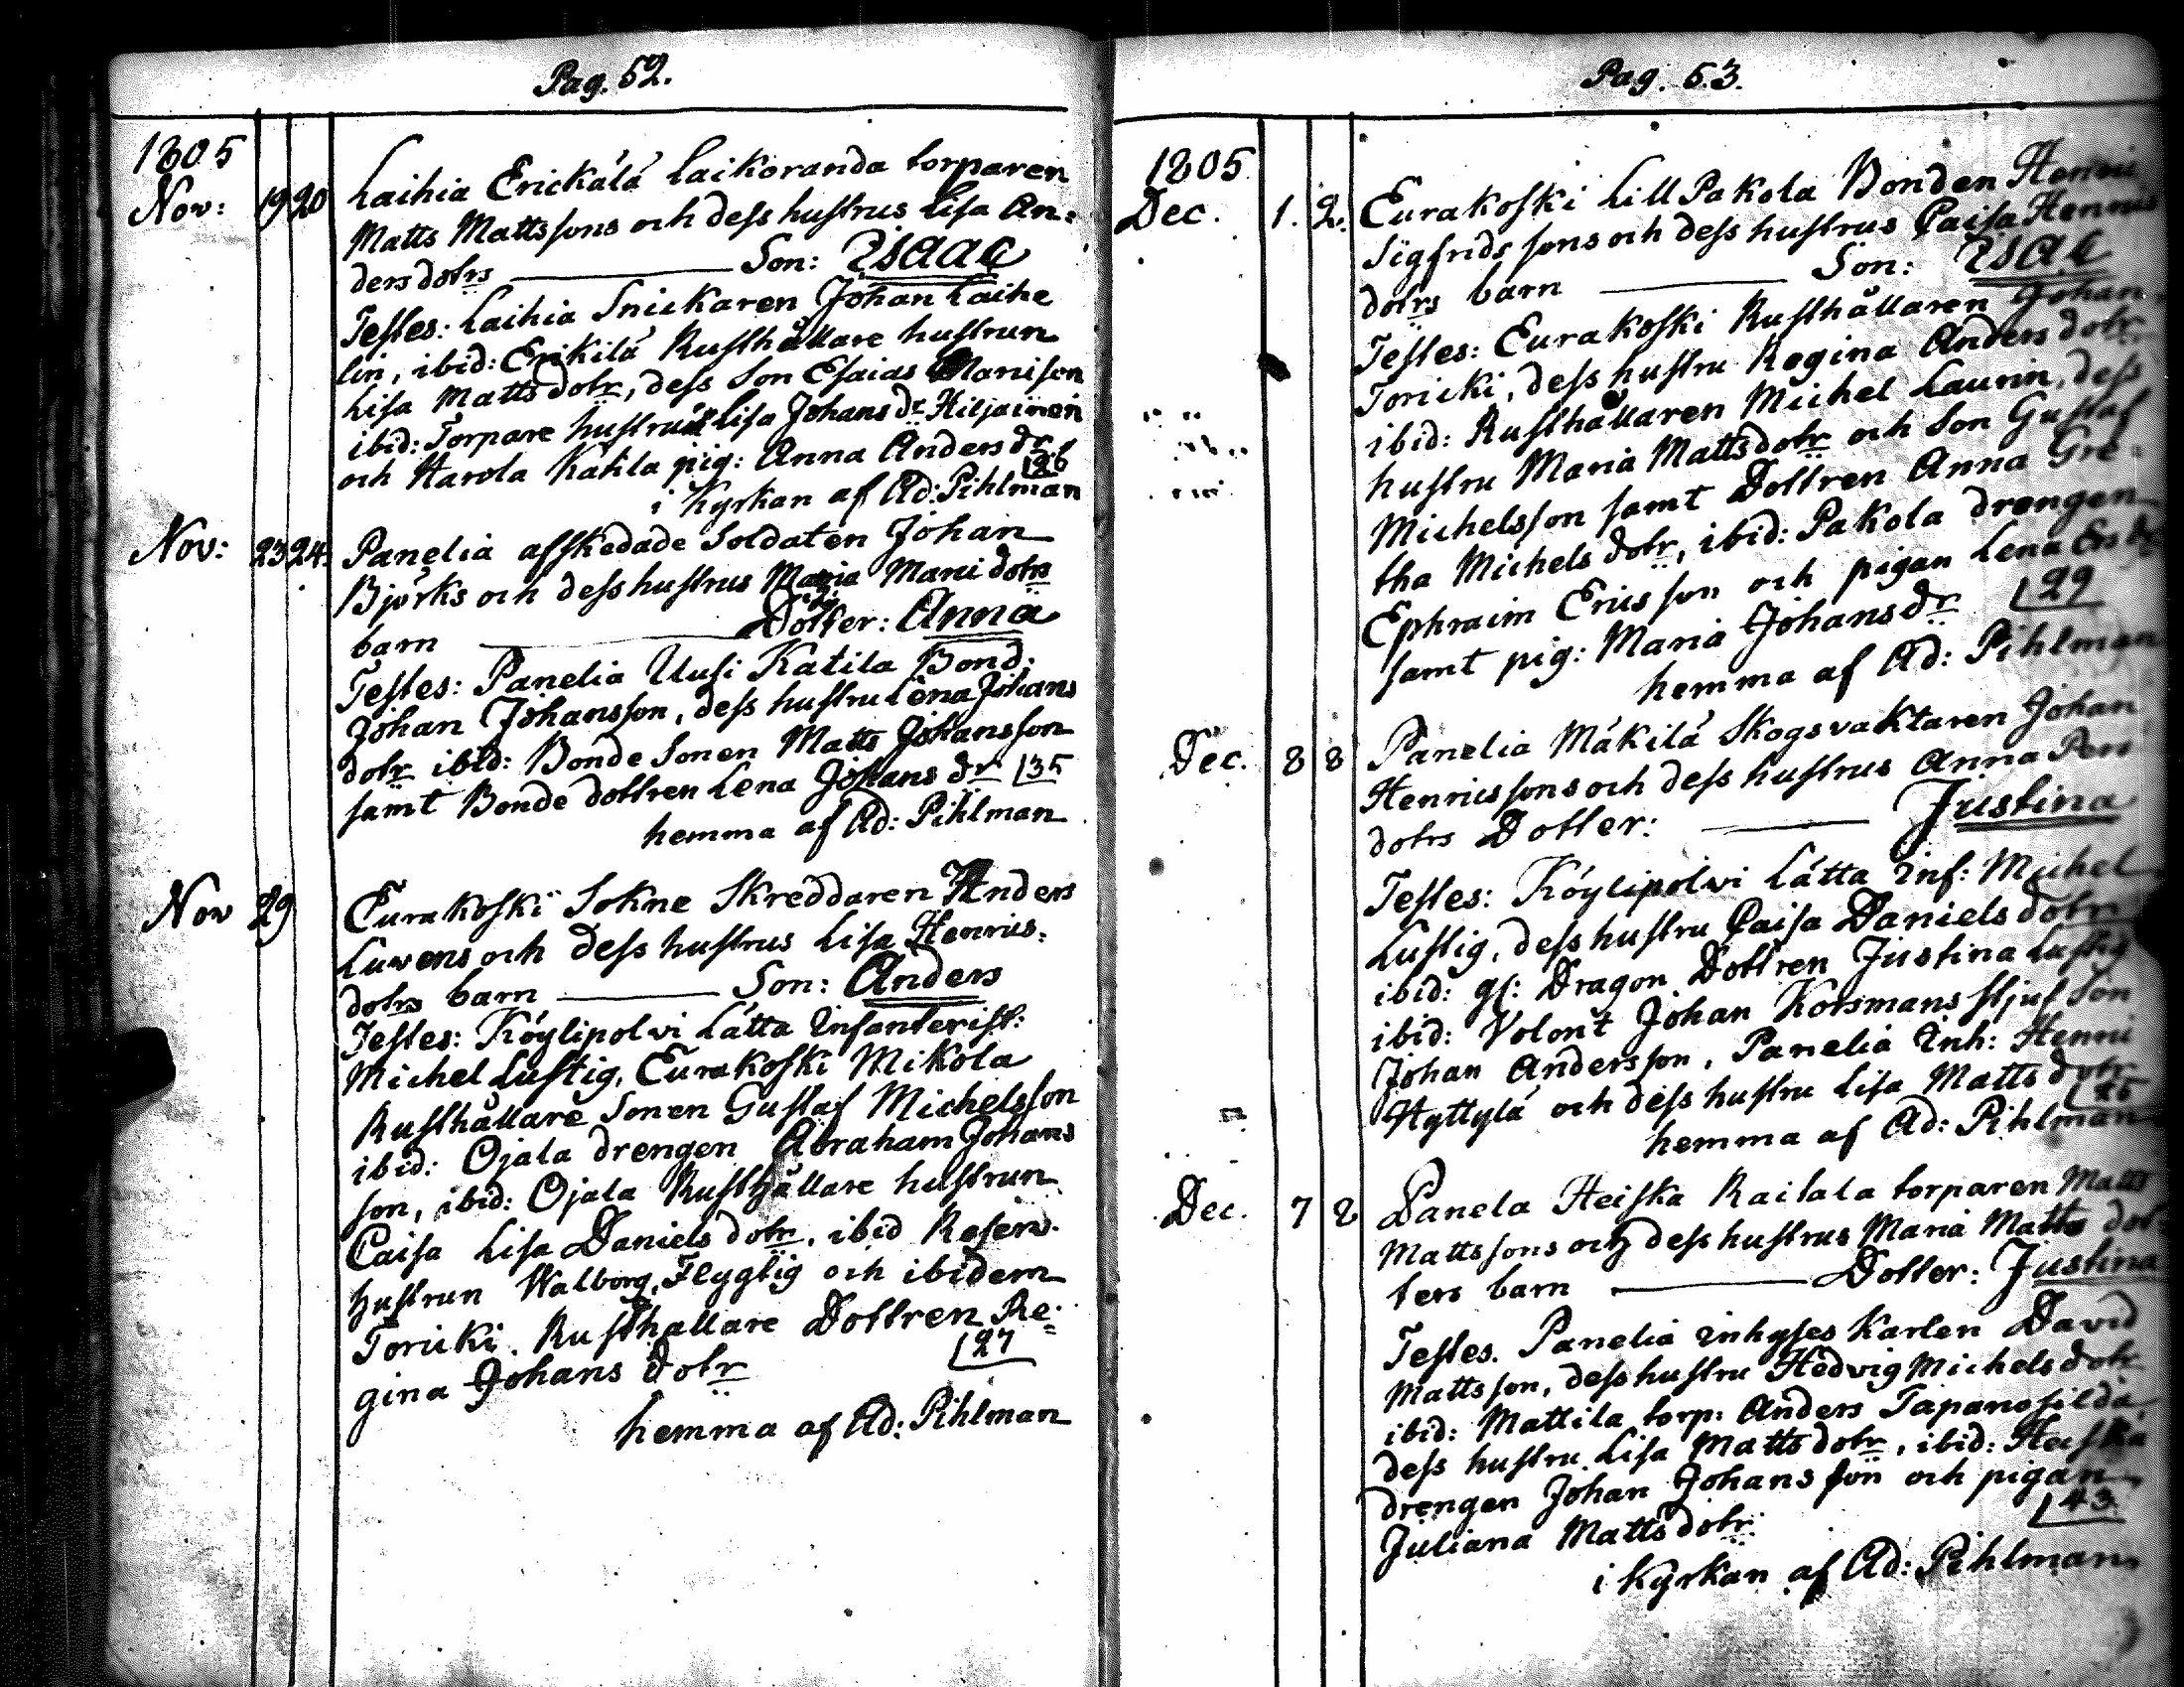 Pag. 52.
1805
Nov: 19 20 Laihia Erickälä Laikoranda torparen
Matts Mattssons och dess hustrus Lisa An:
dersdotrs — Son: Isaac
Testes: Laihia Snickaren Johan Laihe
lin, ibid: Erikilä Rusthållare hustrun
Lisa Matts dotr, dess Son Esaias Manisson
ibid: Torpare hustrun Lisa Johans dr Kiljainen
och Harola Katila pig: Anna Anders dr
26
i Kyrkan af Ad: Pihlman
Nov: 23 24. Panelia afskedade Soldaten Johan
Björks och dess hustrus Maria Mani dotrs
barn — Dotter: Anna
Testes: Panelia Uusi Katila Bond:
Johan Johansson, dess hustru Lena Johans
dotr ibid: Bonde Sonen Matts Johansson
samt Bonde dottren Lena Johans dr 35
hemma af Ad: Pihlman
Nov 29 Eurakoski Sokne Skreddaren Anders
Luvens och dess hustrus Lisa Henrics:
dotrs barn — Son: Anders
Testes: Köylipolvi Lätta Infanterist:
Michel Lustig, Eurakoski Mikola
Rusthållare Sonen Gustaf Michelsson
ibid: Ojala drengen Abraham Johans
son, ibid: Ojala Rusthållare hustrun
Caisa Lisa Daniels dotr, ibid Reserv.
hustrun Walborg Flygtig och ibidem
Toricki. Rusthallare Dottren Re:
gina Johans dotr 27
hemma af Ad: Pihlman
Pag. 53.
1805.
Dec. 1. 2. Eurakoski Lill Pakola Bonden Henric
Sigfridssons och dess hustrus Caisa Henrics
dotrs barn — Son: Isac
Testes: Eurakoski Rusthållaren Johan
Toricki, dess hustru Regina Anders dotr
ibid: Rusthållaren Michel Laurin, dess
hustru Maria Mattsdotr och Son Gustaf
Michelsson samt Dottren Anna Gre=
tha Michels dotr, ibid: Pakola drengen
Ephraim Ericsson och pigan Lena Ers dr
samt pig: Maria Johans dr 29
hemma af Ad: Pihlman
Dec. 8 8 Panelia Mäkilä Skogsvaktaren Johan
Henricssons och dess hustrus Anna Pers
dotrs Dotter: — Justina
Testes: Köylipolvi Lätta Inf: Michel
Lustig, dess hustru Caisa Daniels dotr
ibid: gl: Dragon Dottren Justina Lustig
ibid: Volont Johan Korsmans stjuf Son
Johan Andersson, Panelia Inh: Henric
Hyttylä och dess hustru Lisa Matts dotr
hemma af Ad: Pihlman
Dec. 7 8 Panela Heiska Raitala torparen Matts
Mattssons och dess hustrus Maria Matts dot
ters barn — Dotter: Justina
Testes. Panelia Inhyses Karlen David
Mattsson, dess hustru Hedvig Michels dotr
ibid: Mattila torp: Anders Tapanosilda
dess hustru Lisa Matts dotr, ibid: Heiska
drengen Johan Johansson och pigan
Juliana Matts dotr 43.
i Kyrkan af Ad: Pihlman